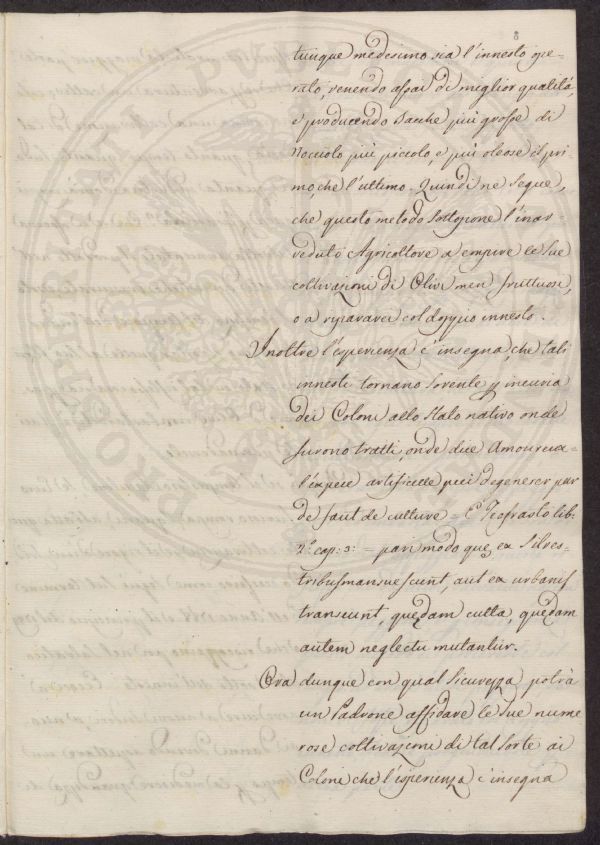 8
tunque medesimo sia l'innesto ope-
rato, venendo assai di miglior qualità,
e producendo bacche più grosse di
Nocciolo più piccolo, e più oleose il pri
mo, che l'ultimo. Quindi ne segue,
che questo metodo sottopone l'inav-
veduto Agricoltore a empire le sue
coltivazioni di Olivi men fruttuosi,
o a ripararvi col doppio innesto.
Inoltre l'esperienza c'insegna, che tali
innesti tornano sovente p incuria
dei Coloni allo stato nativo onde
furono tratti, onde dice Amoureux =
l'espece artificielle peut degenerer par
de faut de culture = E Teofrasto lib:
2º cap: 3: = pari modo que ex Silves-
tribus mansuescunt, aut ex urbanis
transeunt, quedam culta, quedam
autem neglectu mutantur.
Ora dunque con qual sicurezza potrà
un Padrone affidare le sue nume
rose coltivazioni di tal sorte ai
Coloni che l'esperienza c'insegna